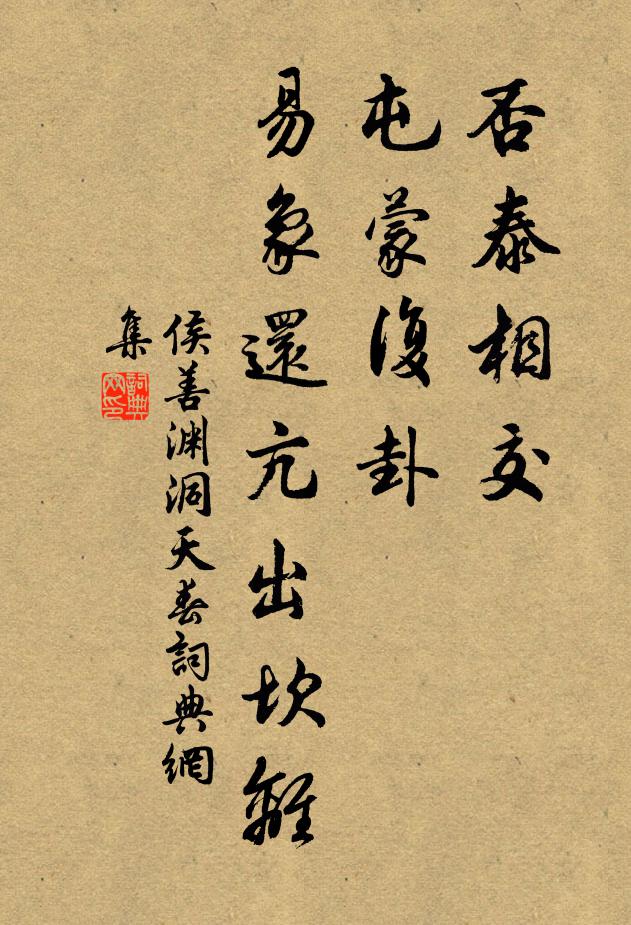 否泰相交
屯蒙復卦
易象還亢出坎離
侯善渊洞天春詞典網
集
詞典網印